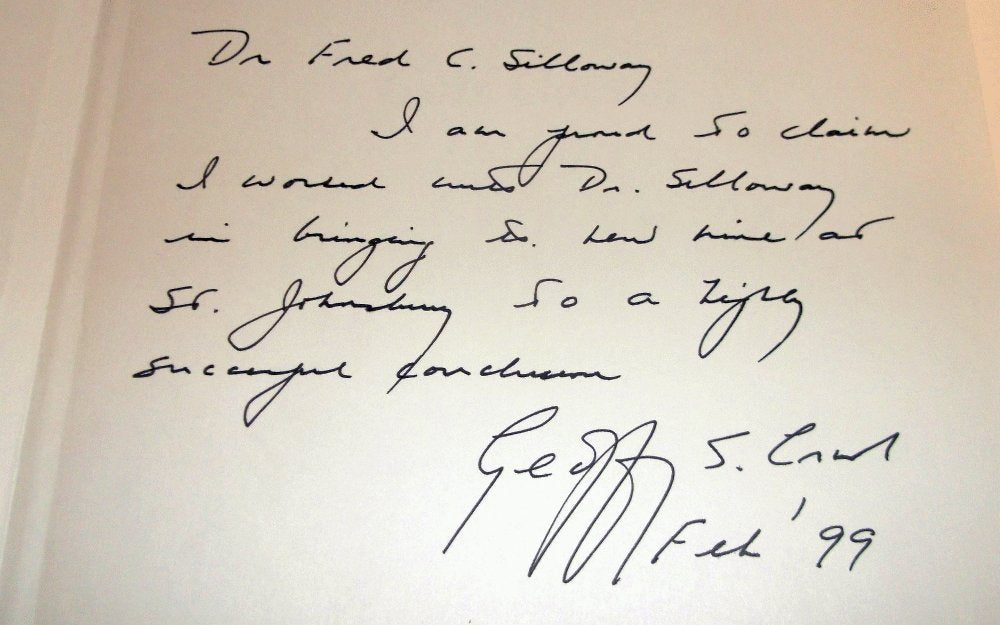 Dr Fred C. Silloway
I am proud to claim
I worked with Dr. Silloway
in bringing the new mine at
St. Johnsbury to a highly
successful conclusion
Geoffrey S.
Feb '99